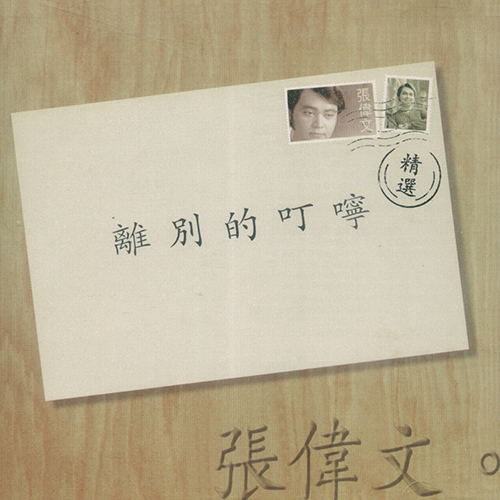 張偉文
精
選
離別的叮嚀
張偉文。